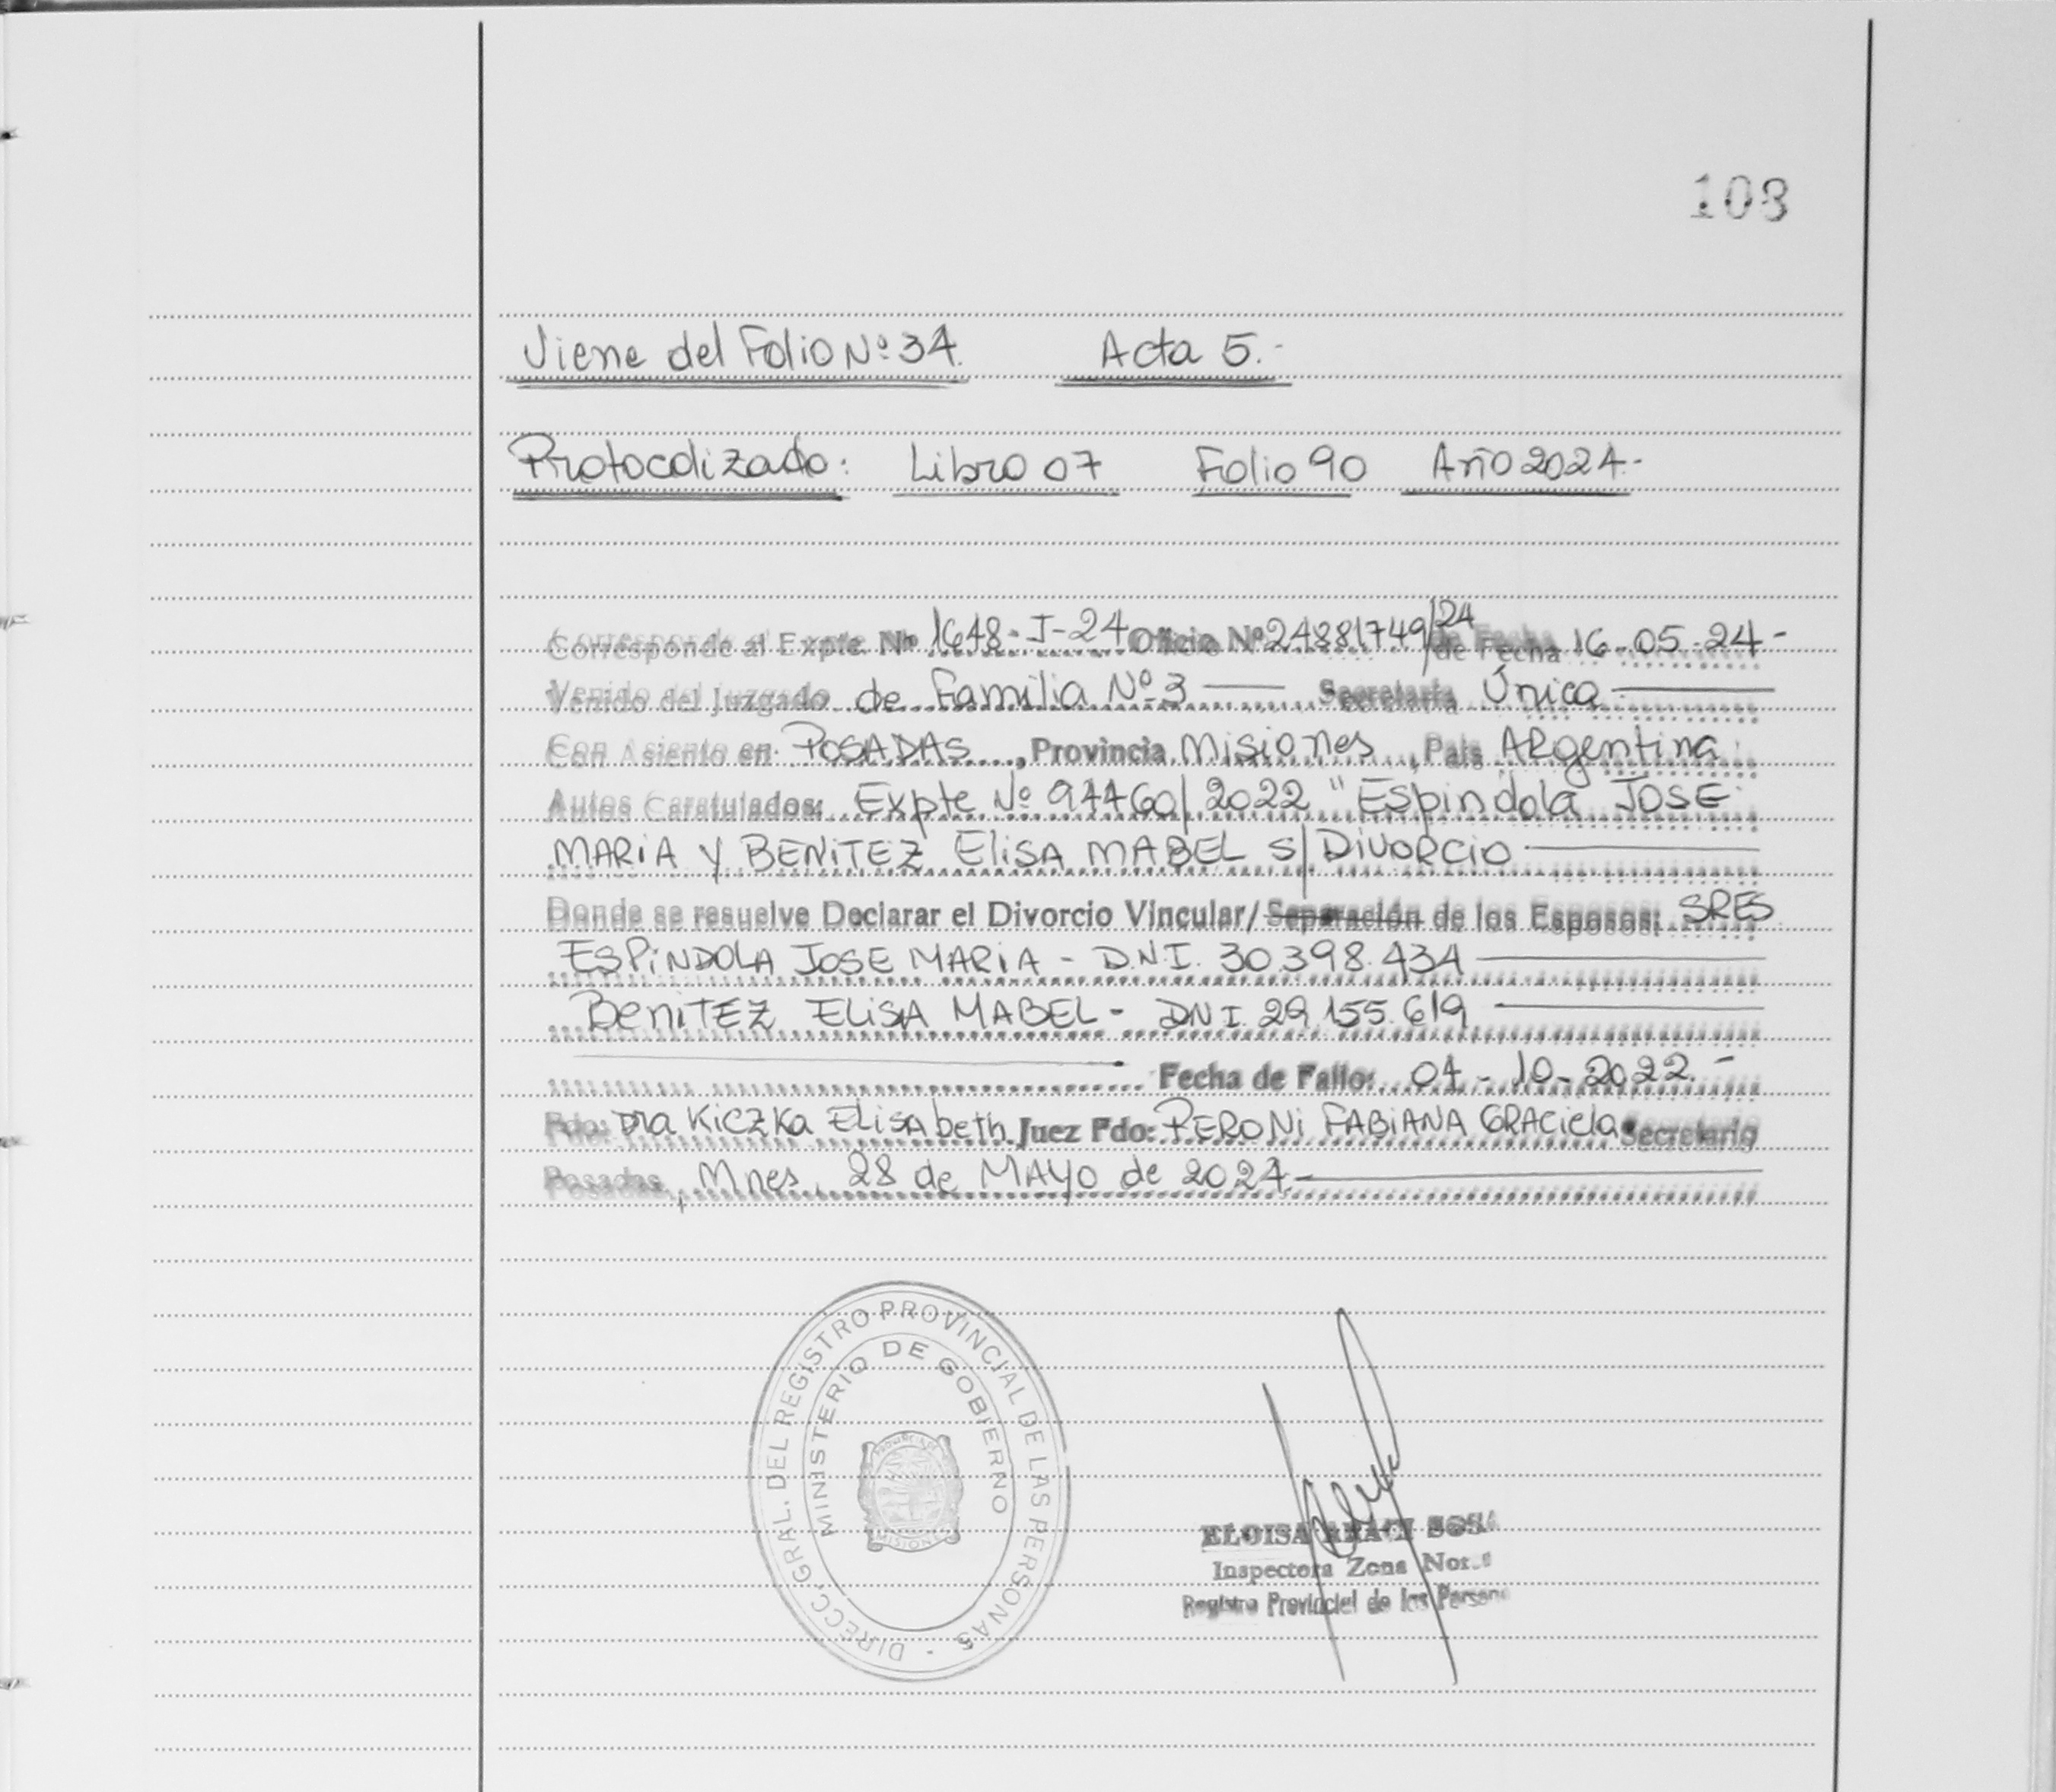 108
Viene del Folio Nº 34. Acta 5.-
Protocolizado: Libro 07 Folio 90 Año 2024.-
Corresponde al Expte Nº 1648-I-24 Oficio Nº 24881749/24 de Fecha 16-05-24-
Venido del Juzgado de Familia Nº 3 Secretaría Única
Con Asiento en POSADAS, Provincia Misiones, País ARgentina
Autos Caratulados: Expte Nº 94460/2022 "Espindola JOSE
MARIA Y BENITEZ ElisA MABEL s/DivoRcio
Donde se resuelve Declarar el Divorcio Vincular/Separación de los Esposos: SRES
ESPiNDOLA JOSE MARIA - D.N.I. 30.398.434
BeniTEZ ELiSA MABEL - DNI. 29.155.619
Fecha de Fallo: 04-10-2022.-
Fdo: Dra Kiczka ElisAbeth Juez Fdo: PERONi FABiANA GRAciela Secretario
Posadas, Mnes, 28 de MAYO de 2024.-
DIRECC. GRAL. DEL REGISTRO PROVINCIAL DE LAS PERSONAS
MINISTERIO DE GOBIERNO
ELOISA SOSA
Inspectora Zona
Registro Provincial de las